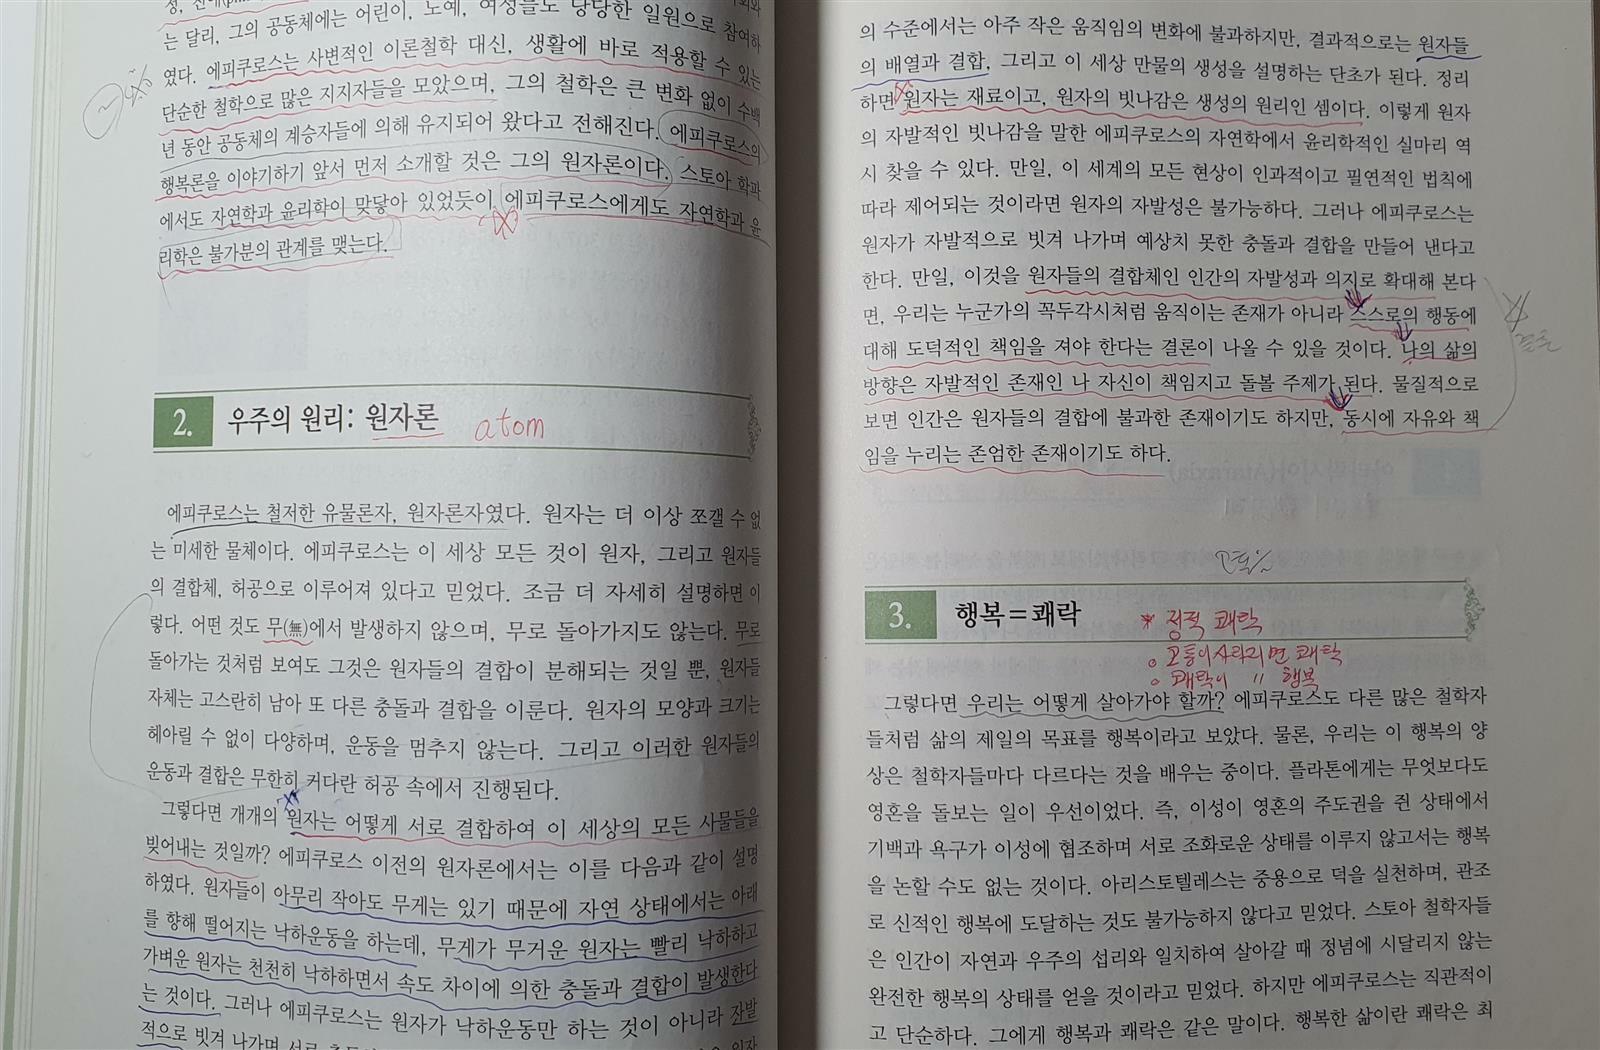 는 달리, 그의 공동체에는 어린이, 노예, 여성들도 당당한 일원으로 참여하
였다. 에피쿠로스는 사변적인 이론철학 대신, 생활에 바로 적용할 수 있는
단순한 철학으로 많은 지지자들을 모았으며, 그의 철학은 큰 변화 없이 수백
년 동안 공동체의 계승자들에 의해 유지되어 왔다고 전해진다. 에피쿠로스의
행복론을 이야기하기 앞서 먼저 소개할 것은 그의 원자론이다. 스토아 학파
에서도 자연학과 윤리학이 맞닿아 있었듯이 에피쿠로스에게도 자연학과 윤
리학은 불가분의 관계를 맺는다.
2. 우주의 원리: 원자론 atom
에피쿠로스는 철저한 유물론자, 원자론자였다. 원자는 더 이상 쪼갤 수 없
는 미세한 물체이다. 에피쿠로스는 이 세상 모든 것이 원자, 그리고 원자들
의 결합체, 허공으로 이루어져 있다고 믿었다. 조금 더 자세히 설명하면 이
렇다. 어떤 것도 무(無)에서 발생하지 않으며, 무로 돌아가지도 않는다. 무로
돌아가는 것처럼 보여도 그것은 원자들의 결합이 분해되는 것일 뿐, 원자들
자체는 고스란히 남아 또 다른 충돌과 결합을 이룬다. 원자의 모양과 크기는
헤아릴 수 없이 다양하며, 운동을 멈추지 않는다. 그리고 이러한 원자들의
운동과 결합은 무한히 커다란 허공 속에서 진행된다.
그렇다면 개개의 원자는 어떻게 서로 결합하여 이 세상의 모든 사물들을
빚어내는 것일까? 에피쿠로스 이전의 원자론에서는 이를 다음과 같이 설명
하였다. 원자들이 아무리 작아도 무게는 있기 때문에 자연 상태에서는 아래
를 향해 떨어지는 낙하운동을 하는데, 무게가 무거운 원자는 빨리 낙하하고
가벼운 원자는 천천히 낙하하면서 속도 차이에 의한 충돌과 결합이 발생한다
는 것이다. 그러나 에피쿠로스는 원자가 낙하운동만 하는 것이 아니라 자발
적으로 빗겨 나가며 서로
의 수준에서는 아주 작은 움직임의 변화에 불과하지만, 결과적으로는 원자들
의 배열과 결합, 그리고 이 세상 만물의 생성을 설명하는 단초가 된다. 정리
하면 원자는 재료이고, 원자의 빗나감은 생성의 원리인 셈이다. 이렇게 원자
의 자발적인 빗나감을 말한 에피쿠로스의 자연학에서 윤리학적인 실마리 역
시 찾을 수 있다. 만일, 이 세계의 모든 현상이 인과적이고 필연적인 법칙에
따라 제어되는 것이라면 원자의 자발성은 불가능하다. 그러나 에피쿠로스는
원자가 자발적으로 빗겨 나가며 예상치 못한 충돌과 결합을 만들어 낸다고
한다. 만일, 이것을 원자들의 결합체인 인간의 자발성과 의지로 확대해 본다
면, 우리는 누군가의 꼭두각시처럼 움직이는 존재가 아니라 스스로의 행동에
대해 도덕적인 책임을 져야 한다는 결론이 나올 수 있을 것이다. 나의 삶의
방향은 자발적인 존재인 나 자신이 책임지고 돌볼 주제가 된다. 물질적으로
보면 인간은 원자들의 결합에 불과한 존재이기도 하지만, 동시에 자유와 책
임을 누리는 존엄한 존재이기도 하다.
3. 행복=쾌락 * 정적 쾌락
고통이 사라지면 쾌락
쾌락이 〃 행복
그렇다면 우리는 어떻게 살아가야 할까? 에피쿠로스도 다른 많은 철학자
들처럼 삶의 제일의 목표를 행복이라고 보았다. 물론, 우리는 이 행복의 양
상은 철학자들마다 다르다는 것을 배우는 중이다. 플라톤에게는 무엇보다도
영혼을 돌보는 일이 우선이었다. 즉, 이성이 영혼의 주도권을 쥔 상태에서
기백과 욕구가 이성에 협조하며 서로 조화로운 상태를 이루지 않고서는 행복
을 논할 수도 없는 것이다. 아리스토텔레스는 중용으로 덕을 실천하며, 관조
로 신적인 행복에 도달하는 것도 불가능하지 않다고 믿었다. 스토아 철학자들
은 인간이 자연과 우주의 섭리와 일치하여 살아갈 때 정념에 시달리지 않는
완전한 행복의 상태를 얻을 것이라고 믿었다. 하지만 에피쿠로스는 직관적이
고 단순하다. 그에게 행복과 쾌락은 같은 말이다. 행복한 삶이란 쾌락은 최